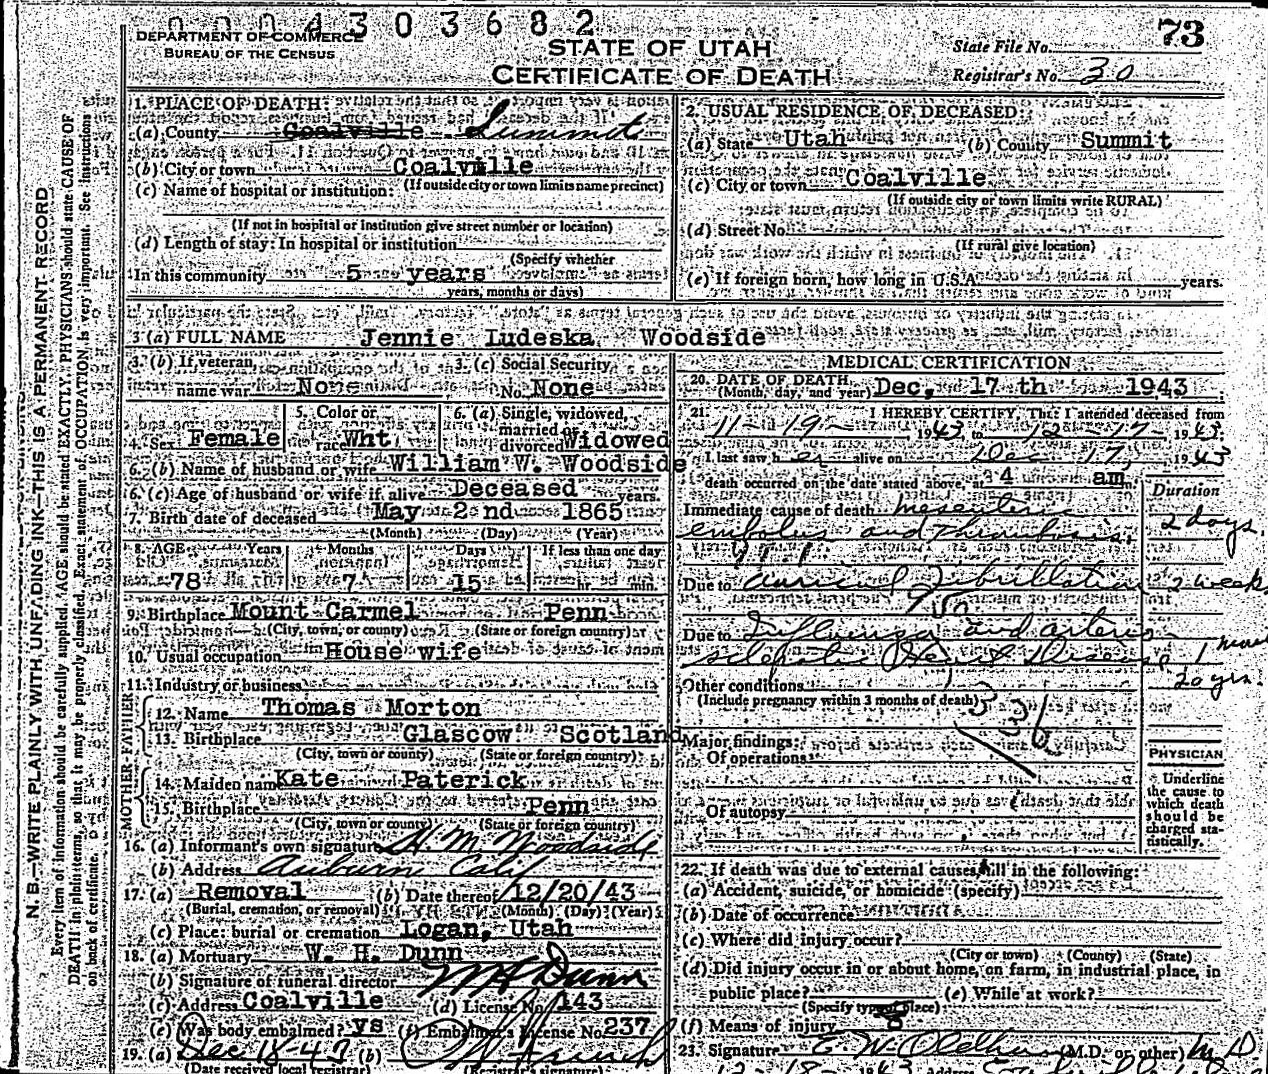 0004303682
DEPARTMENT OF COMMERCE
BUREAU OF THE CENSUS
STATE OF UTAH
CERTIFICATE OF DEATH
State File No. 73
Registrar's No. 30
N. B.—WRITE PLAINLY WITH UNFADING INK—THIS IS A PERMANENT RECORD
Every item of information should be carefully supplied. AGE should be stated EXACTLY. PHYSICIANS should state CAUSE OF
DEATH in plain terms, so that it may be properly classified. Exact statement of OCCUPATION is very important. See instructions
on back of certificate.
1. PLACE OF DEATH:
(a) County Coalville Summit
(b) City or town Coalville
(If outside city or town limits name precinct)
(c) Name of hospital or institution:
(If not in hospital or institution give street number or location)
(d) Length of stay: In hospital or institution
(Specify whether
In this community 5 years
years, months or days)
2. USUAL RESIDENCE OF DECEASED:
(a) State Utah (b) County Summit
(c) City or town Coalville
(If outside city or town limits write RURAL)
(d) Street No.
(If rural give location)
(e) If foreign born, how long in U.S.A. years.
3 (a) FULL NAME Jennie Ludeska Woodside
3. (b) If veteran, name war None
3. (c) Social Security No. None
4. Sex Female
5. Color or race Wht
6. (a) Single, widowed, married or divorced Widowed
6. (b) Name of husband or wife William W. Woodside
6. (c) Age of husband or wife if alive Deceased years.
7. Birth date of deceased May 2 nd 1865
(Month) (Day) (Year)
8. AGE Years Months Days If less than one day
78 7 15 hr. min.
9. Birthplace Mount Carmel Penn
(City, town, or county) (State or foreign country)
10. Usual occupation House wife
11. Industry or business
FATHER
12. Name Thomas Morton
13. Birthplace Glascow Scotland
(City, town or county) (State or foreign country)
MOTHER
14. Maiden name Kate Paterick
15. Birthplace Penn
(City, town or county) (State or foreign country)
16. (a) Informant's own signature H. M. Woodside
(b) Address Auburn Calif
17. (a) Removal (b) Date thereof 12/20/43
(Burial, cremation, or removal) (Month) (Day) (Year)
(c) Place: burial or cremation Logan, Utah
18. (a) Mortuary W. H. Dunn
(b) Signature of funeral director W H Dunn
(c) Address Coalville (d) License No. 143
(e) Was body embalmed? ys (f) Embalmer's License No. 237
19. (a) Dec 18-43 (b)
(Date received local registrar) (Registrar's signature)
MEDICAL CERTIFICATION
20. DATE OF DEATH Dec, 17 th 1943
(Month, day, and year)
21. I HEREBY CERTIFY, That I attended deceased from
11-19- 1943, to 12-17- 1943.
I last saw her alive on Dec 17, 1943
death occurred on the date stated above, at 4 am
Duration
Immediate cause of death mesenteric
embolus and thrombosis. 2 days.
Due to auricul fibrillation 2 weeks
Due to Influenza and arterio-
sclerotic Heart Disease 1
20 yrs.
Other conditions
(Include pregnancy within 3 months of death)
Major findings:
Of operations
Of autopsy
PHYSICIAN
Underline
the cause to
which death
should be
charged sta-
tistically.
22. If death was due to external causes, fill in the following:
(a) Accident, suicide, or homicide (specify)
(b) Date of occurrence
(c) Where did injury occur?
(City or town) (County) (State)
(d) Did injury occur in or about home, on farm, in industrial place, in
public place? (e) While at work?
(Specify type of place)
(f) Means of injury
23. Signature E. W. Oldham (M.D. or other) M D
12-18-1943 Address